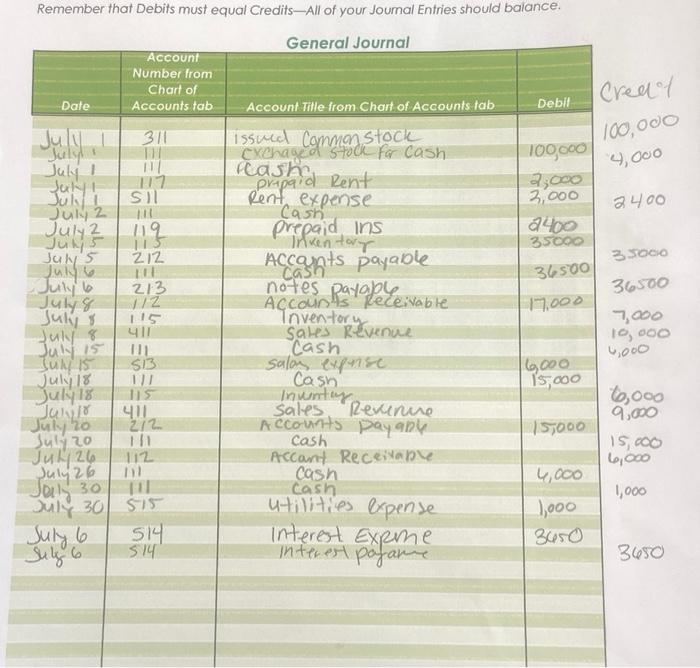 Remember that Debits must equal Credits—All of your Journal Entries should balance.
General Journal
Date Account Number from Chart of Accounts tab Account Title from Chart of Accounts tab Debit Credit
July 1 311 issued Common stock 100,000
July 1 111 exchaged stock for cash 100,000
July 1 111 cash 4,000
July 1 117 prepaid Rent 2,000
July 1 511 Rent expense 2,000
July 2 111 Cash 2400
July 2 119 prepaid ins 2400
July 5 115 Inventory 35000
July 5 212 Accounts payable 35000
July 6 111 Cash 36500
July 6 213 notes payable 36500
July 8 112 Accounts Receivable 17,000
July 8 115 Inventory 7,000
July 8 411 Sales Revenue 10,000
July 15 111 Cash 6,000
July 15 513 salary expense 6,000
July 18 111 Cash 15,000
July 18 115 Inventory 6,000
July 18 411 Sales Revenue 9,000
July 20 212 Accounts payable 15,000
July 20 111 cash 15,000
July 26 112 Account Receivable 6,000
July 26 111 Cash 4,000
July 30 111 Cash 1,000
July 30 515 utilities expense 1,000
July 6 514 Interest 3650
July 6 514 Interest 3650